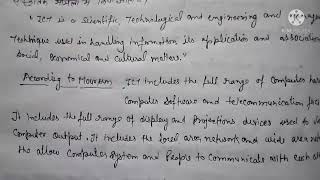 " ICT is a Scientific, Technological and engineering and
Technique used in handling information its application and association
Social, Economical and Cultural matters."
According to Mourson : ICT includes the full range of Computer
Computer Software and telecommunication
It includes the full range of display and Projections devices used to
Computer output. It includes the local area network and wide area
the allow Computer System and People to Communicate with each